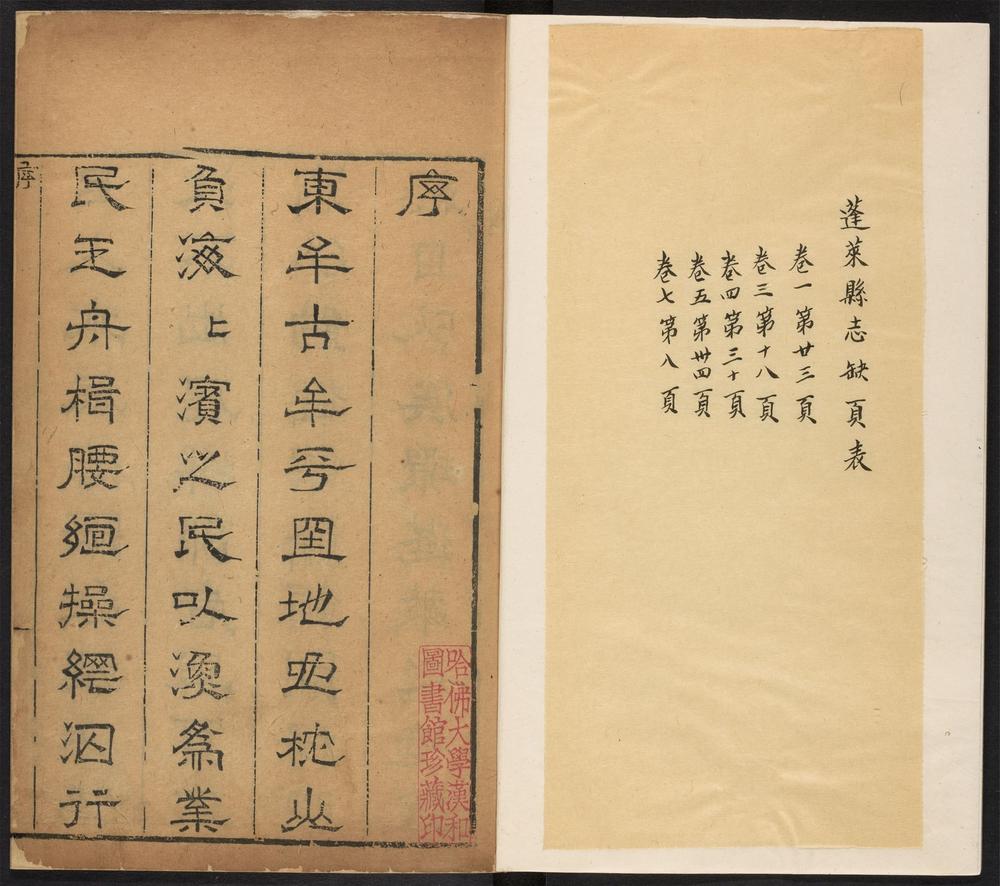 蓬萊縣志缺頁表
卷一第廿三頁
卷三第十八頁
卷四第三十頁
卷五第卅四頁
卷七第八頁
序
東牟古牟平囯地枕山
負海〻濱之民以漁為業
民乏舟楫腰絙操網泅行
序
哈佛大學漢和
圖書館珍藏印